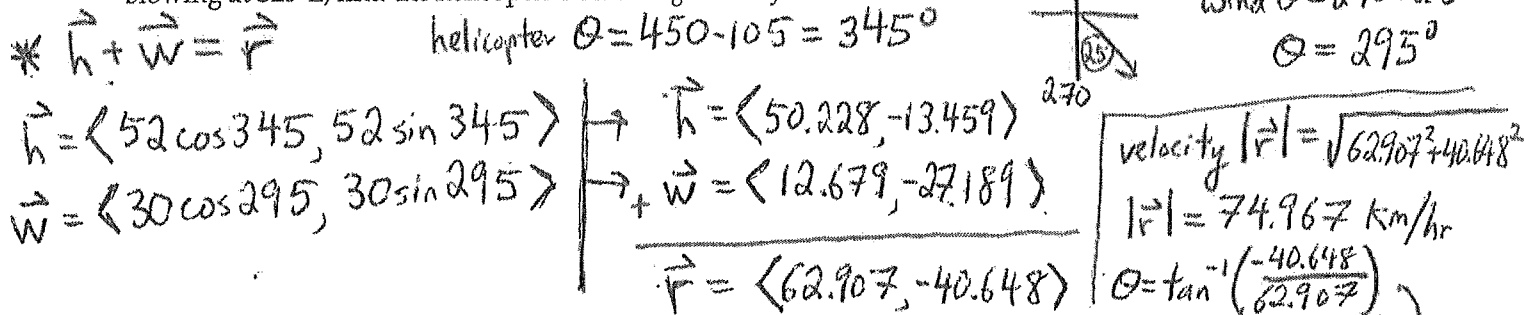 * h⃗ + w⃗ = r⃗
helicopter θ = 450 - 105 = 345°
θ = 295°
25
270
h⃗ = ⟨52 cos 345, 52 sin 345⟩
w⃗ = ⟨30 cos 295, 30 sin 295⟩
→ h⃗ = ⟨50.228, -13.459⟩
→ + w⃗ = ⟨12.679, -27.189⟩
r⃗ = ⟨62.907, -40.648⟩
velocity |r⃗| = √62.907² + 40.648²
|r⃗| = 74.967 km/hr
θ = tan⁻¹(-40.648/62.907)